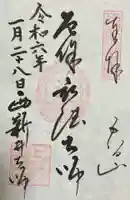 奉拝
厄除弘法大師
令和六年
一月二十八日 西新井大師